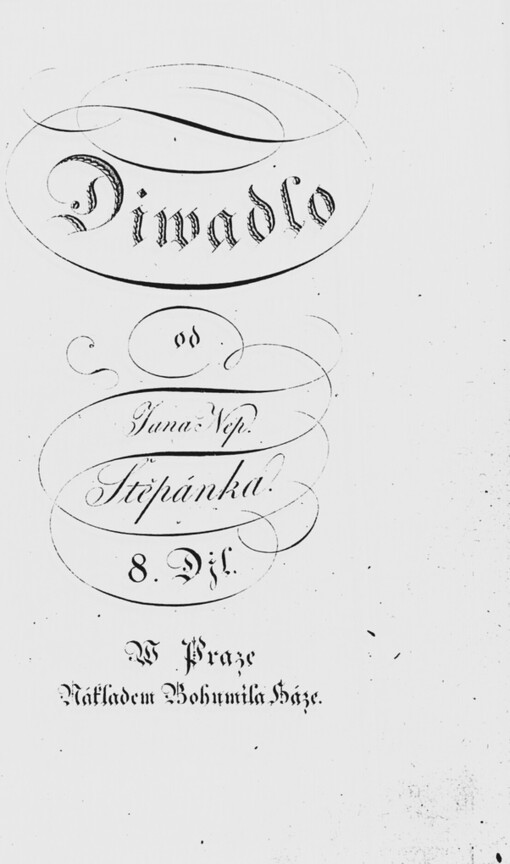 Diwadlo
od
Jana Nep.
Štěpánka.
8. Djl.
W Praze
Nákladem Bohumila Háze.